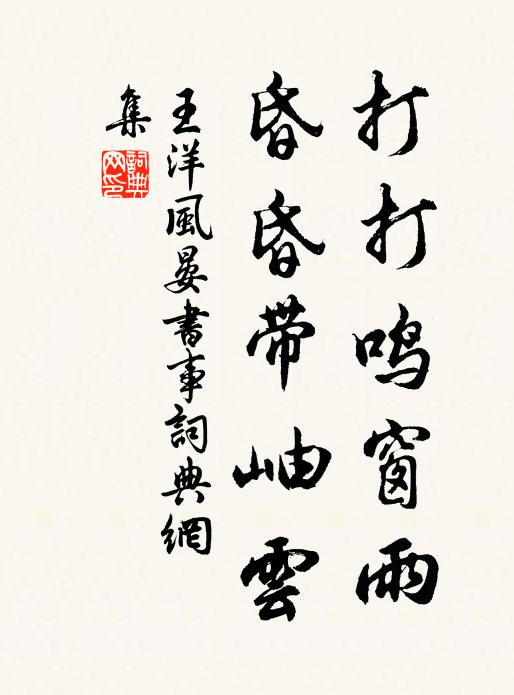 打打鸣窗雨
昏昏带岫雲
王洋風晏書事詞典網
集
詞典
网印